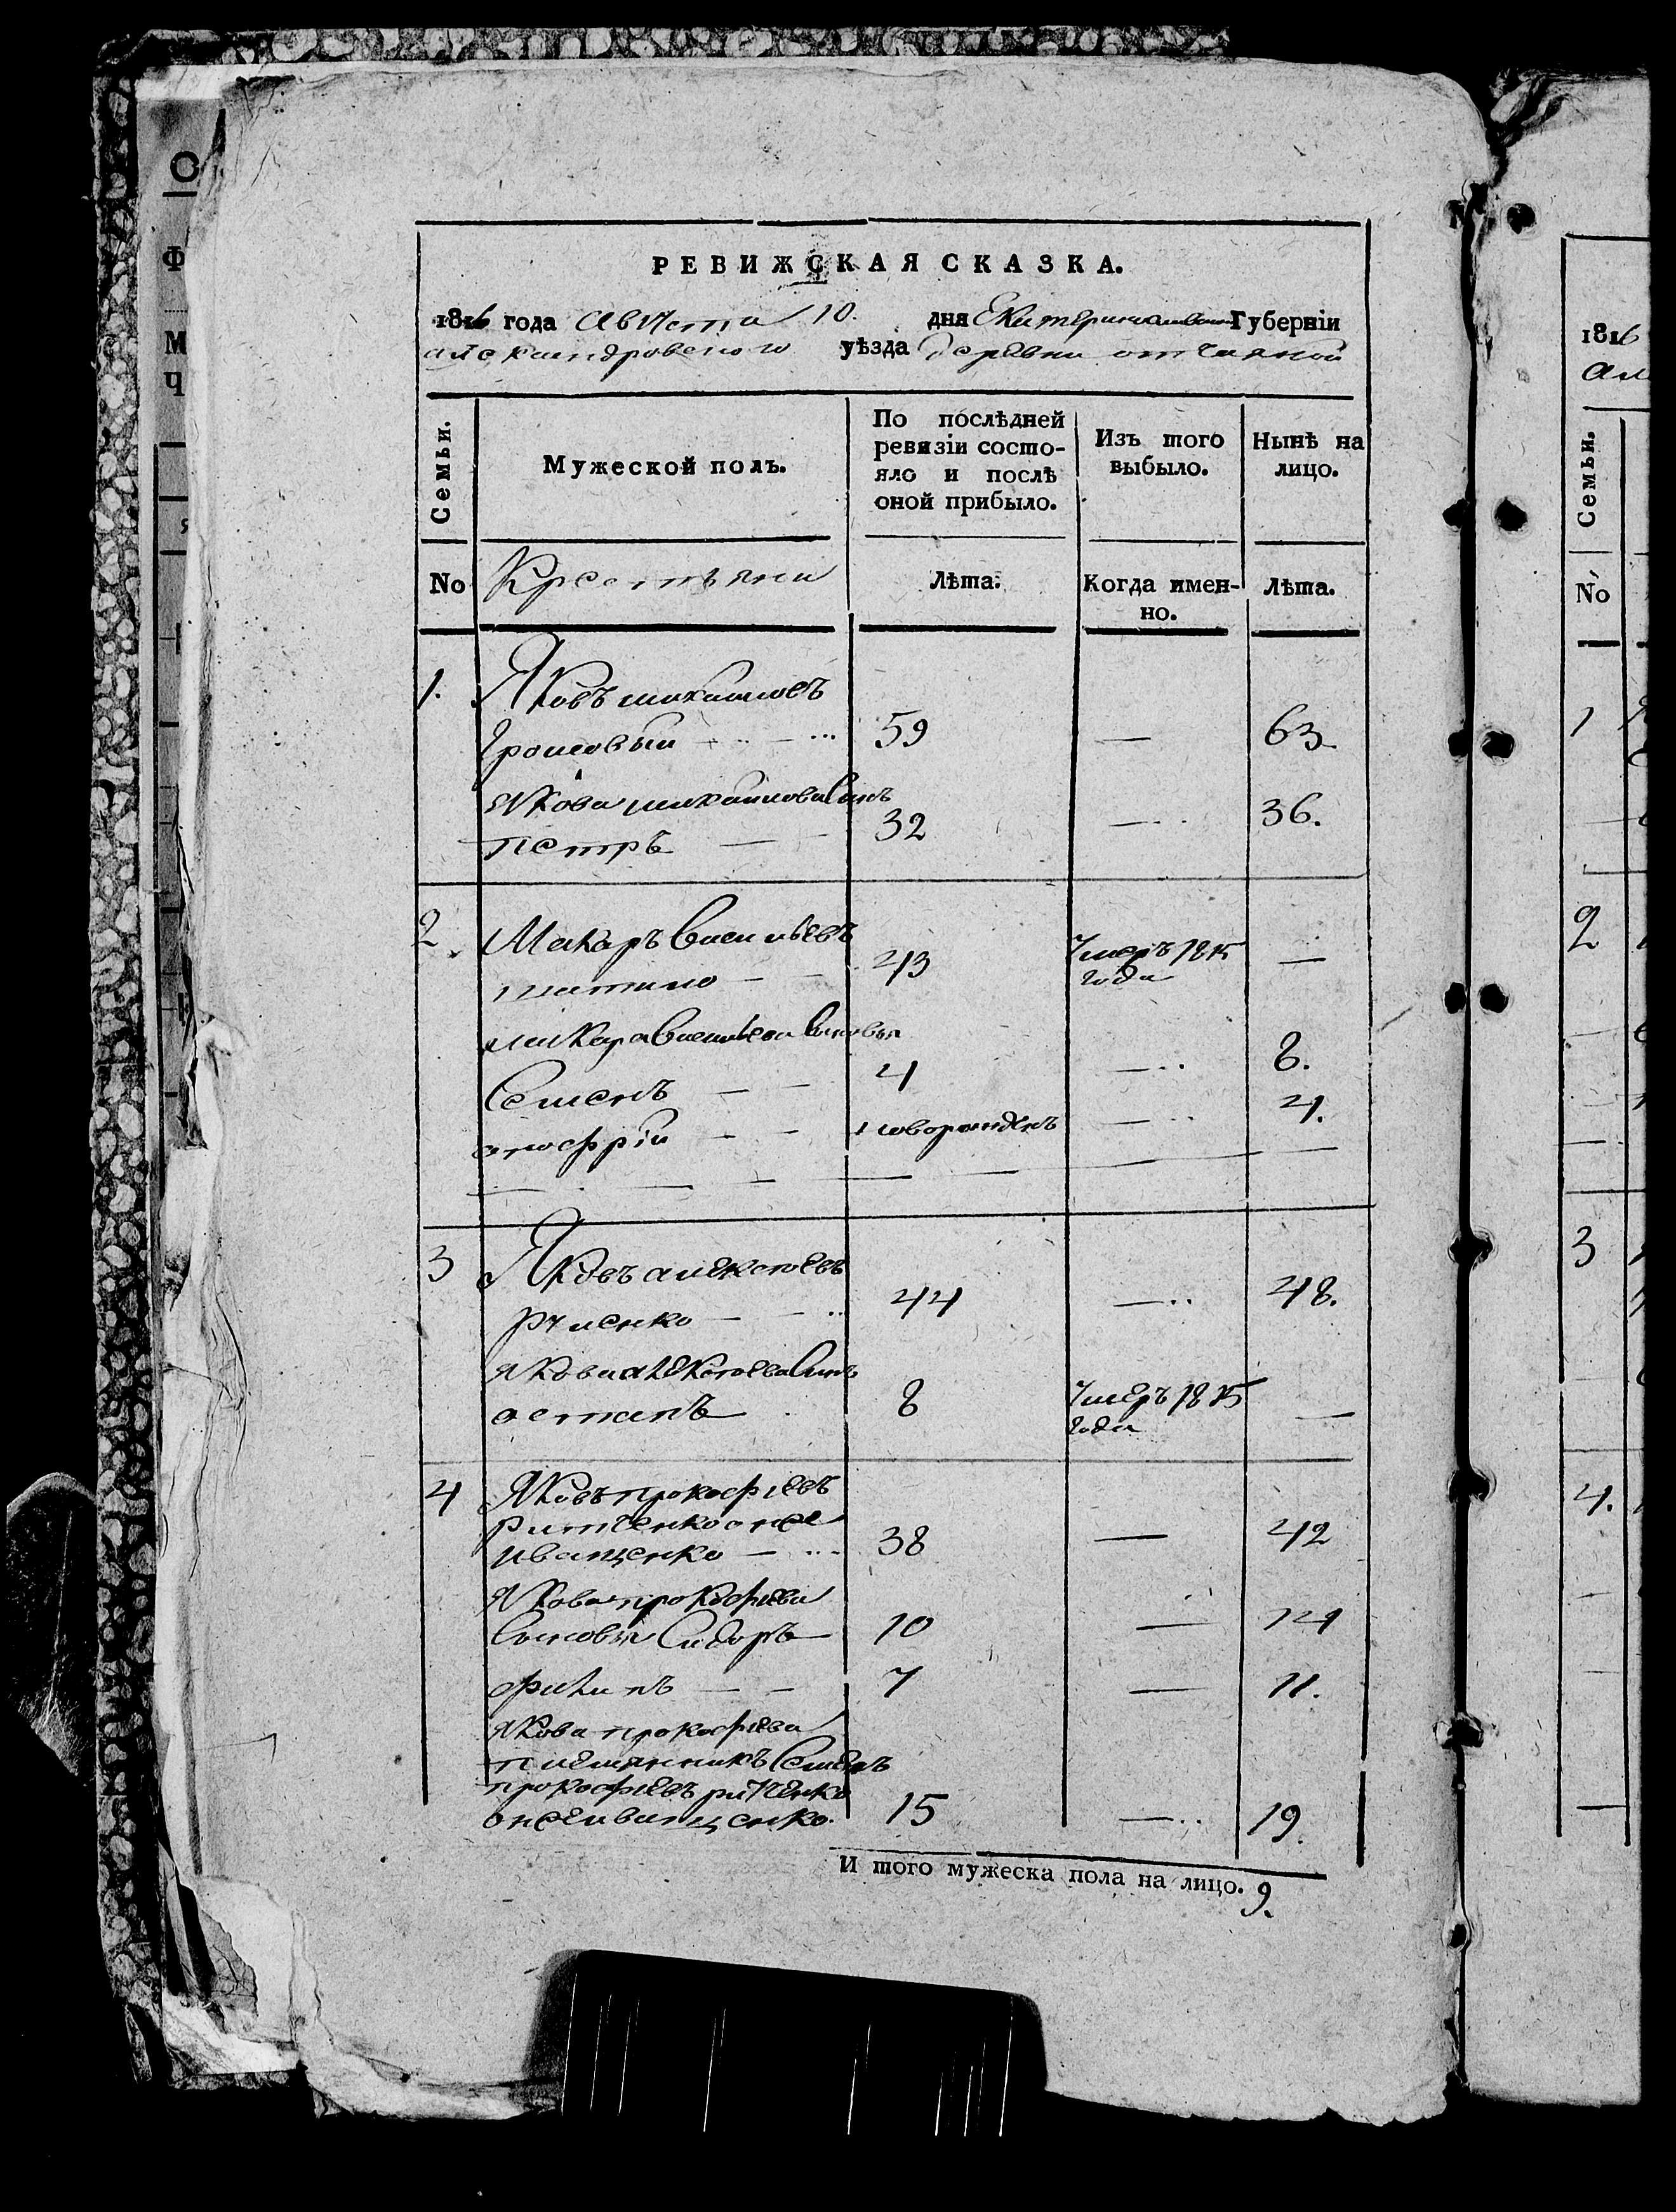 РЕВИЖСКАЯ СКАЗКА.
1816 года Августа 10. дня Екатеринославской Губерніи
александровского уѣзда деревни отчаяной
Семьи.
Мужеской полъ.
По послѣдней
ревизіи состо-
яло и послѣ
оной прибыло.
Изъ того
выбыло.
Нынѣ на
лицо.
No
Крестьяни
Лѣта.
Когда имен-
но.
Лѣта.
1. Яковъ михаиловъ
Громовый 59 — 63.
Якова михаилова Сынъ
петръ — 32 — 36.
2. Макаръ Васильевъ
43 Умеръ 1815 —
года
макара Васильева Сыновья
Семенъ — 4 — 8.
оноофрій — новорожденъ — 4.
3 Яковъ алексеевъ
44 — 48.
Якова алексеева Сынъ
остапъ 8 Умеръ 1815 —
года
4 Яковъ прокофіевъ
онже
иващенко — 38 — 42
Якова прокофіева
Сыновья Сидоръ 10 — 14
филипъ — 7 — 11.
Якова прокофіева
племянникъ Семенъ
прокофіевъ
онже иващенко. 15 — 19.
И того мужеска пола на лицо. 9.
1816
Ал
Семьи.
No
1
2
3
4.
О
Ф
М
Ч